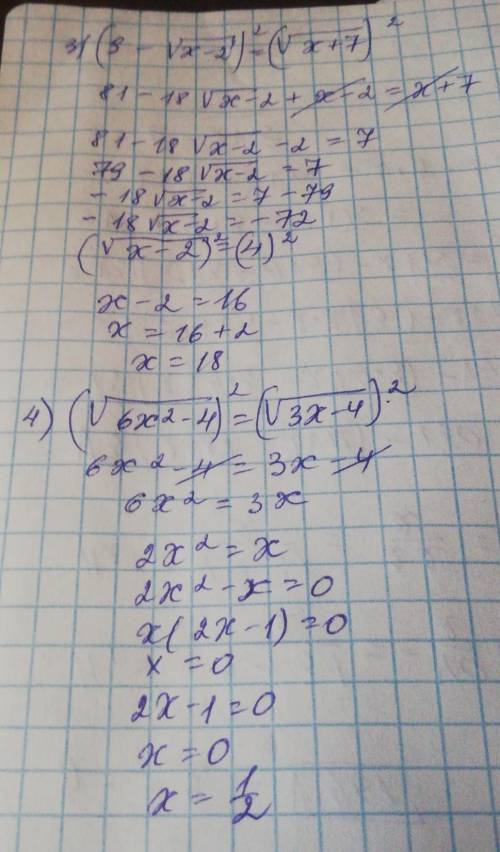 3) (9 - √x-2)² = (√x+7)²
81 - 18√x-2 + x - 2 = x + 7
81 - 18√x-2 - 2 = 7
79 - 18√x-2 = 7
- 18√x-2 = 7 - 79
- 18√x-2 = - 72
(√x-2)² = (4)²
x - 2 = 16
x = 16 + 2
x = 18
4) (√6x²-4)² = (√3x-4)²
6x² - 4 = 3x - 4
6x² = 3x
2x² = x
2x² - x = 0
x(2x-1) = 0
x = 0
2x - 1 = 0
x = 0
x = 1/2